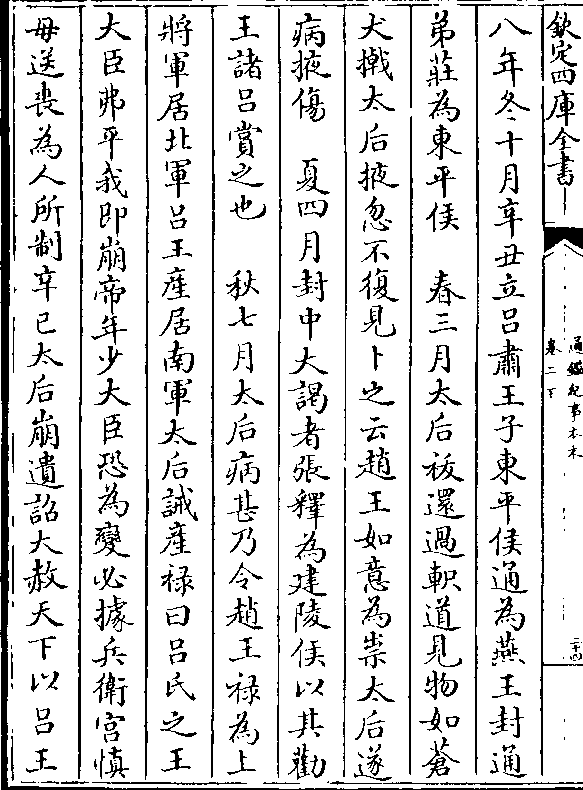 欽定四庫全書
通鑑紀事本末
卷二下
二十四
八年冬十月辛丑立呂肅王子東平侯通為燕王封通
弟莊為東平侯　春三月太后祓還過軹道見物如蒼
犬撠太后掖忽不復見卜之云趙王如意為祟太后遂
病掖傷　夏四月封中大謁者張釋為建陵侯以其勸
王諸呂賞之也　秋七月太后病甚乃令趙王禄為上
將軍居北軍呂王產居南軍太后誡產禄曰呂氏之王
大臣弗平我即崩帝年少大臣恐為變必據兵衛宫慎
毋送喪為人所制辛巳太后崩遺詔大赦天下以呂王